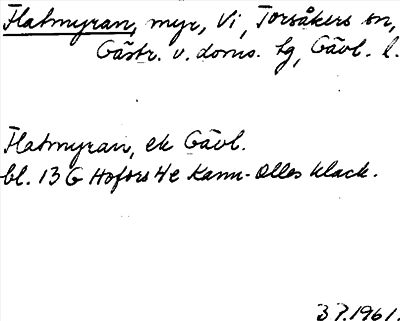 Flatmyran, myr, Vi, Torsåkers sn,
Gästr. v. doms. tg, Gävl. l.
Flatmyran, ek Gävl.
bl. 13 G Hofors 4e Kann-Olles klack.
3 7.1961.